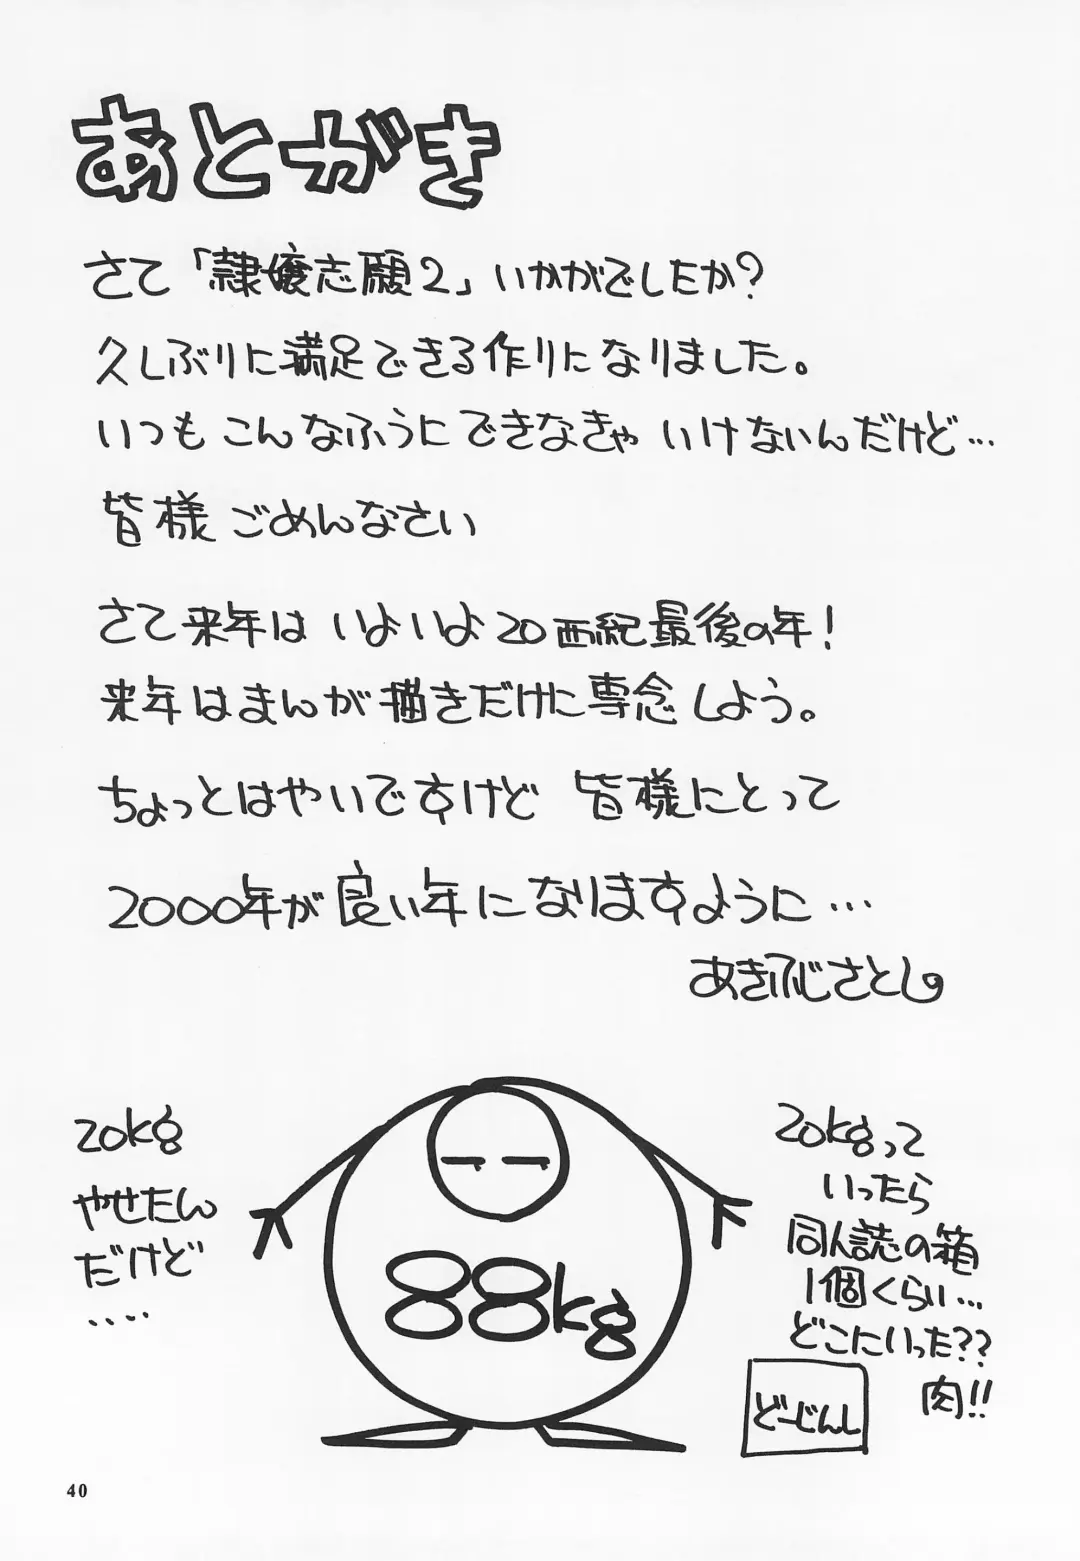 あとがき
さて「隷嬢志願2」いかがでしたか?
久しぶりに満足できる作りになりました。
いつもこんなふうにできなきゃいけないんだけど…
皆様ごめんなさい
さて来年はいよいよ20西紀最後の年!
来年はまんが描きだけに専念しよう。
ちょっとはやいですけど 皆様にとって
2000年が良い年になりますように…
あきふじさとし
20kg
やせたん
だけど
‥‥
88kg
20kgって
いったら
同人読の箱
1個くらい…
どこにいった??
肉!!
どーじんし
40